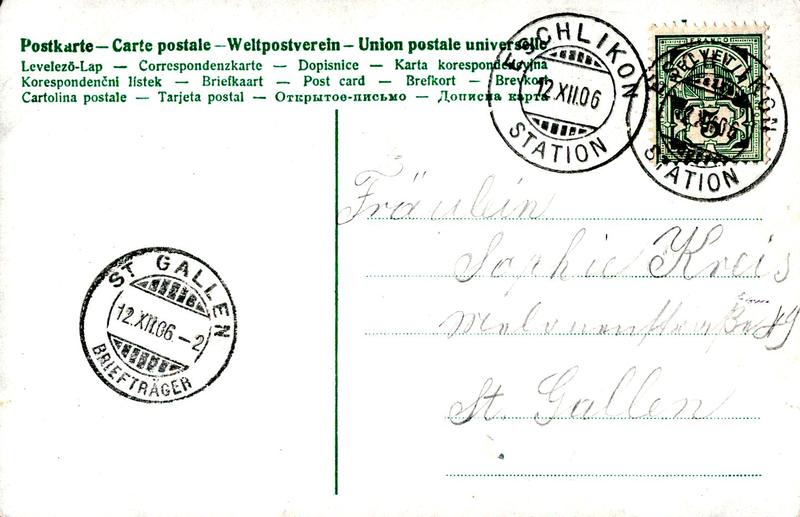 Postkarte — Carte postale — Weltpostverein — Union postale universelle
Levelező-Lap — Correspondenzkarte — Dopisnice — Karta korespondencyjna
Korespondenční lístek — Briefkaart — Post card — Brefkort — Brevkort
Cartolina postale — Tarjeta postal — Открытое-письмо — Дописна карта
ESCHLIKON
12.XII.06
STATION
FRANCO
HELVETIA
5
ESCHLIKON
12.XII.06
STATION
Fräulein
Sophie Kreis
St. Gallen
ST. GALLEN
12.XII.06 – 2
BRIEFTRÄGER